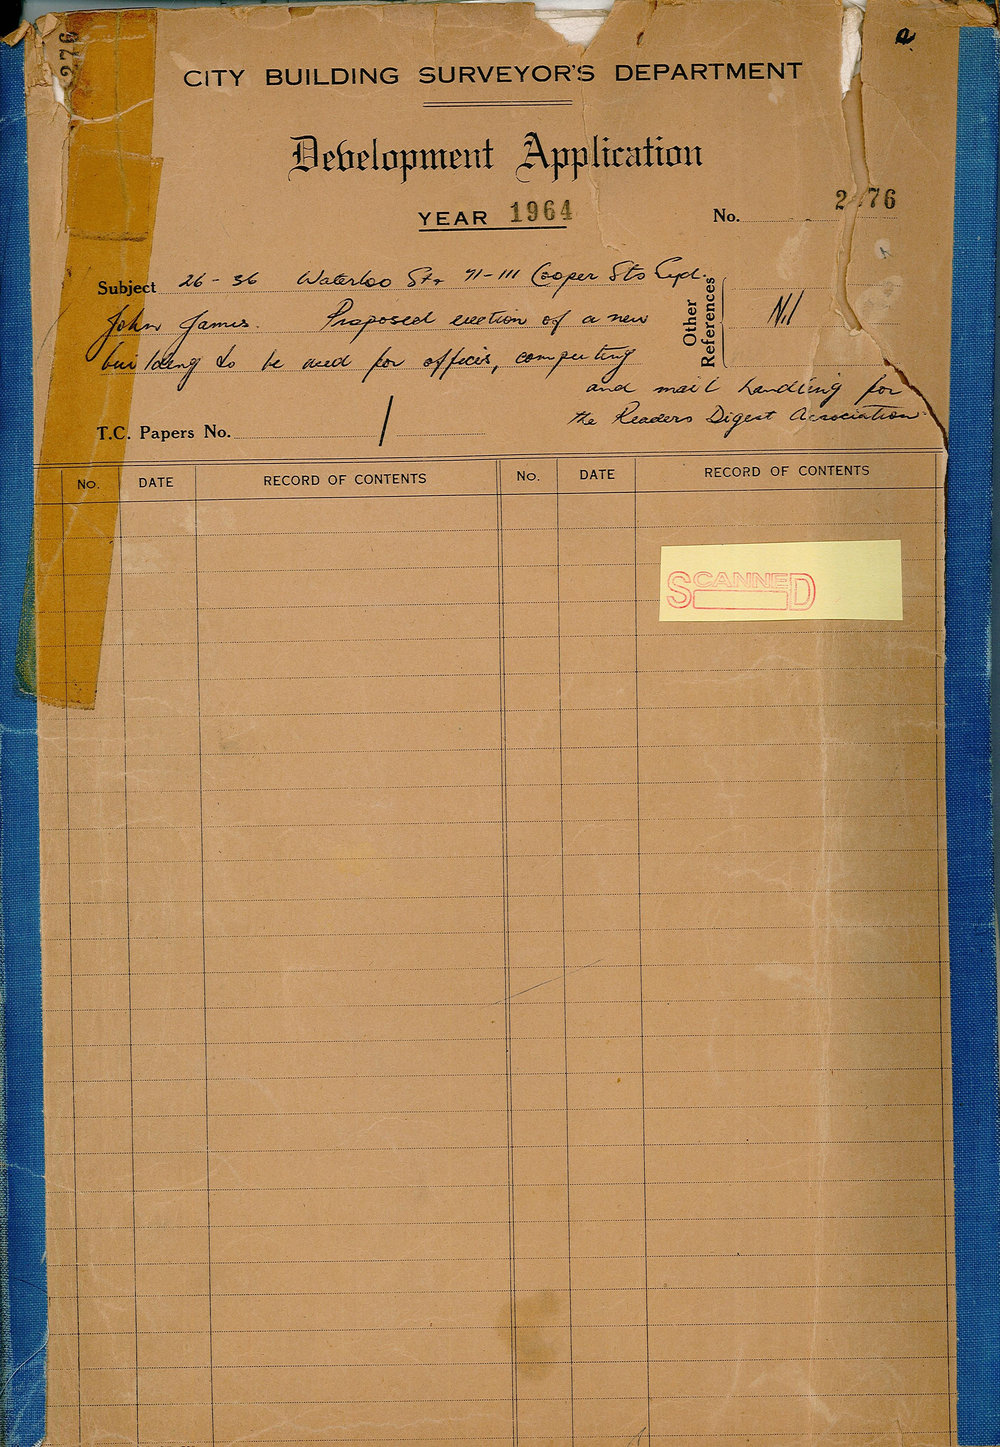 276
CITY BUILDING SURVEYOR'S DEPARTMENT
Development Application
YEAR 1964
No. 2 76
Subject 26 - 36 Waterloo St. 71-111 Cooper Sts
John James. Proposed erection of a new
building to be used for offices, computing
and mail handling for
the Readers Digest Association
Other References
Nil
T.C. Papers No. /
No. DATE RECORD OF CONTENTS No. DATE RECORD OF CONTENTS
SCANNED